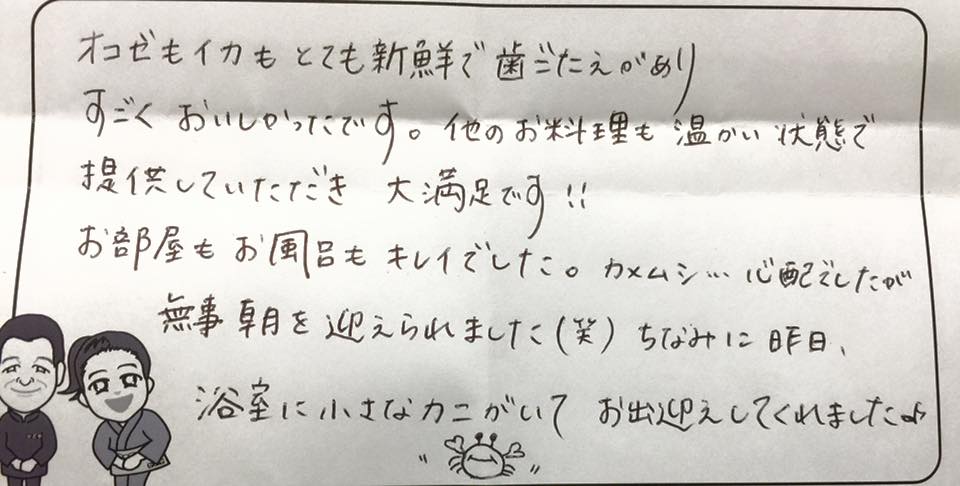 オコゼもイカもとても新鮮で歯ごたえがあり
すごくおいしかったです。他のお料理も温かい状態で
提供していただき 大満足です!!
お部屋もお風呂もキレイでした。カメムシ…心配でしたが
無事朝を迎えられました(笑)ちなみに昨日、
浴室に小さなカニがいて お出迎えしてくれました♪